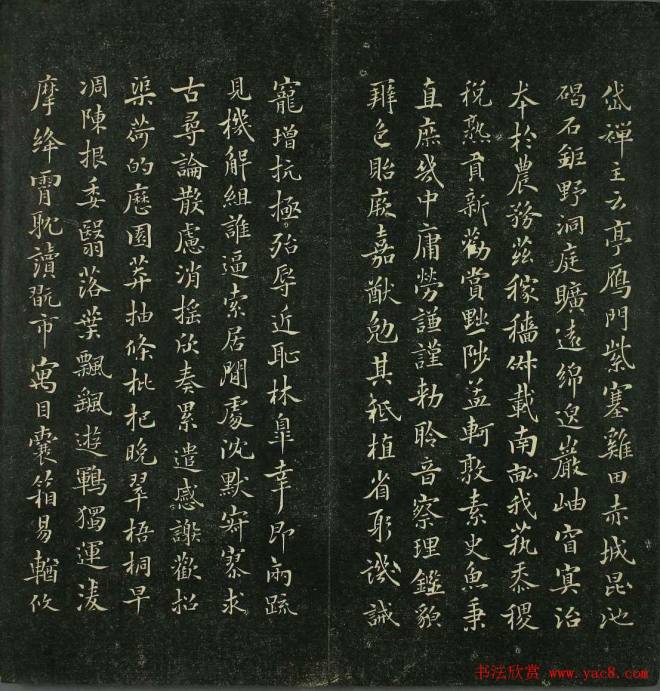 岱禪主云亭鴈門紫塞雞田赤城昆池
碣石鉅野洞庭曠遠綿邈巖岫窅冥治
本於農務茲稼穡俶載南畝我蓺黍稷
稅熟貢新勸賞黜陟孟軻敦素史魚秉
直庶幾中庸勞謙謹勅聆音察理鑑貌
辯色貽厥嘉猷勉其祗植省躬譏誡
寵增抗極殆辱近恥林皋幸即兩疏
見機解組誰逼索居閒處沈默寂寥求
古尋論散慮消搖欣奏累遣慼謝歡招
渠荷的歷園莽抽條枇杷晚翠梧桐早
凋陳根委翳落葉飄颻遊鵾獨運凌
摩絳霄耽讀翫市寓目囊箱易輶攸
书法欣赏 www.yac8.com